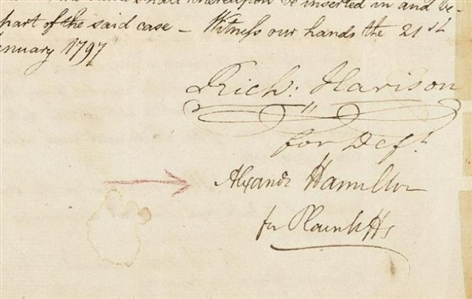 shall thereupon be inserted in and be-
part of the said case – Witness our hands the 21st
January 1797
Rich: Harison
for Deft.
Alexandr Hamilton
for Plaintiffs